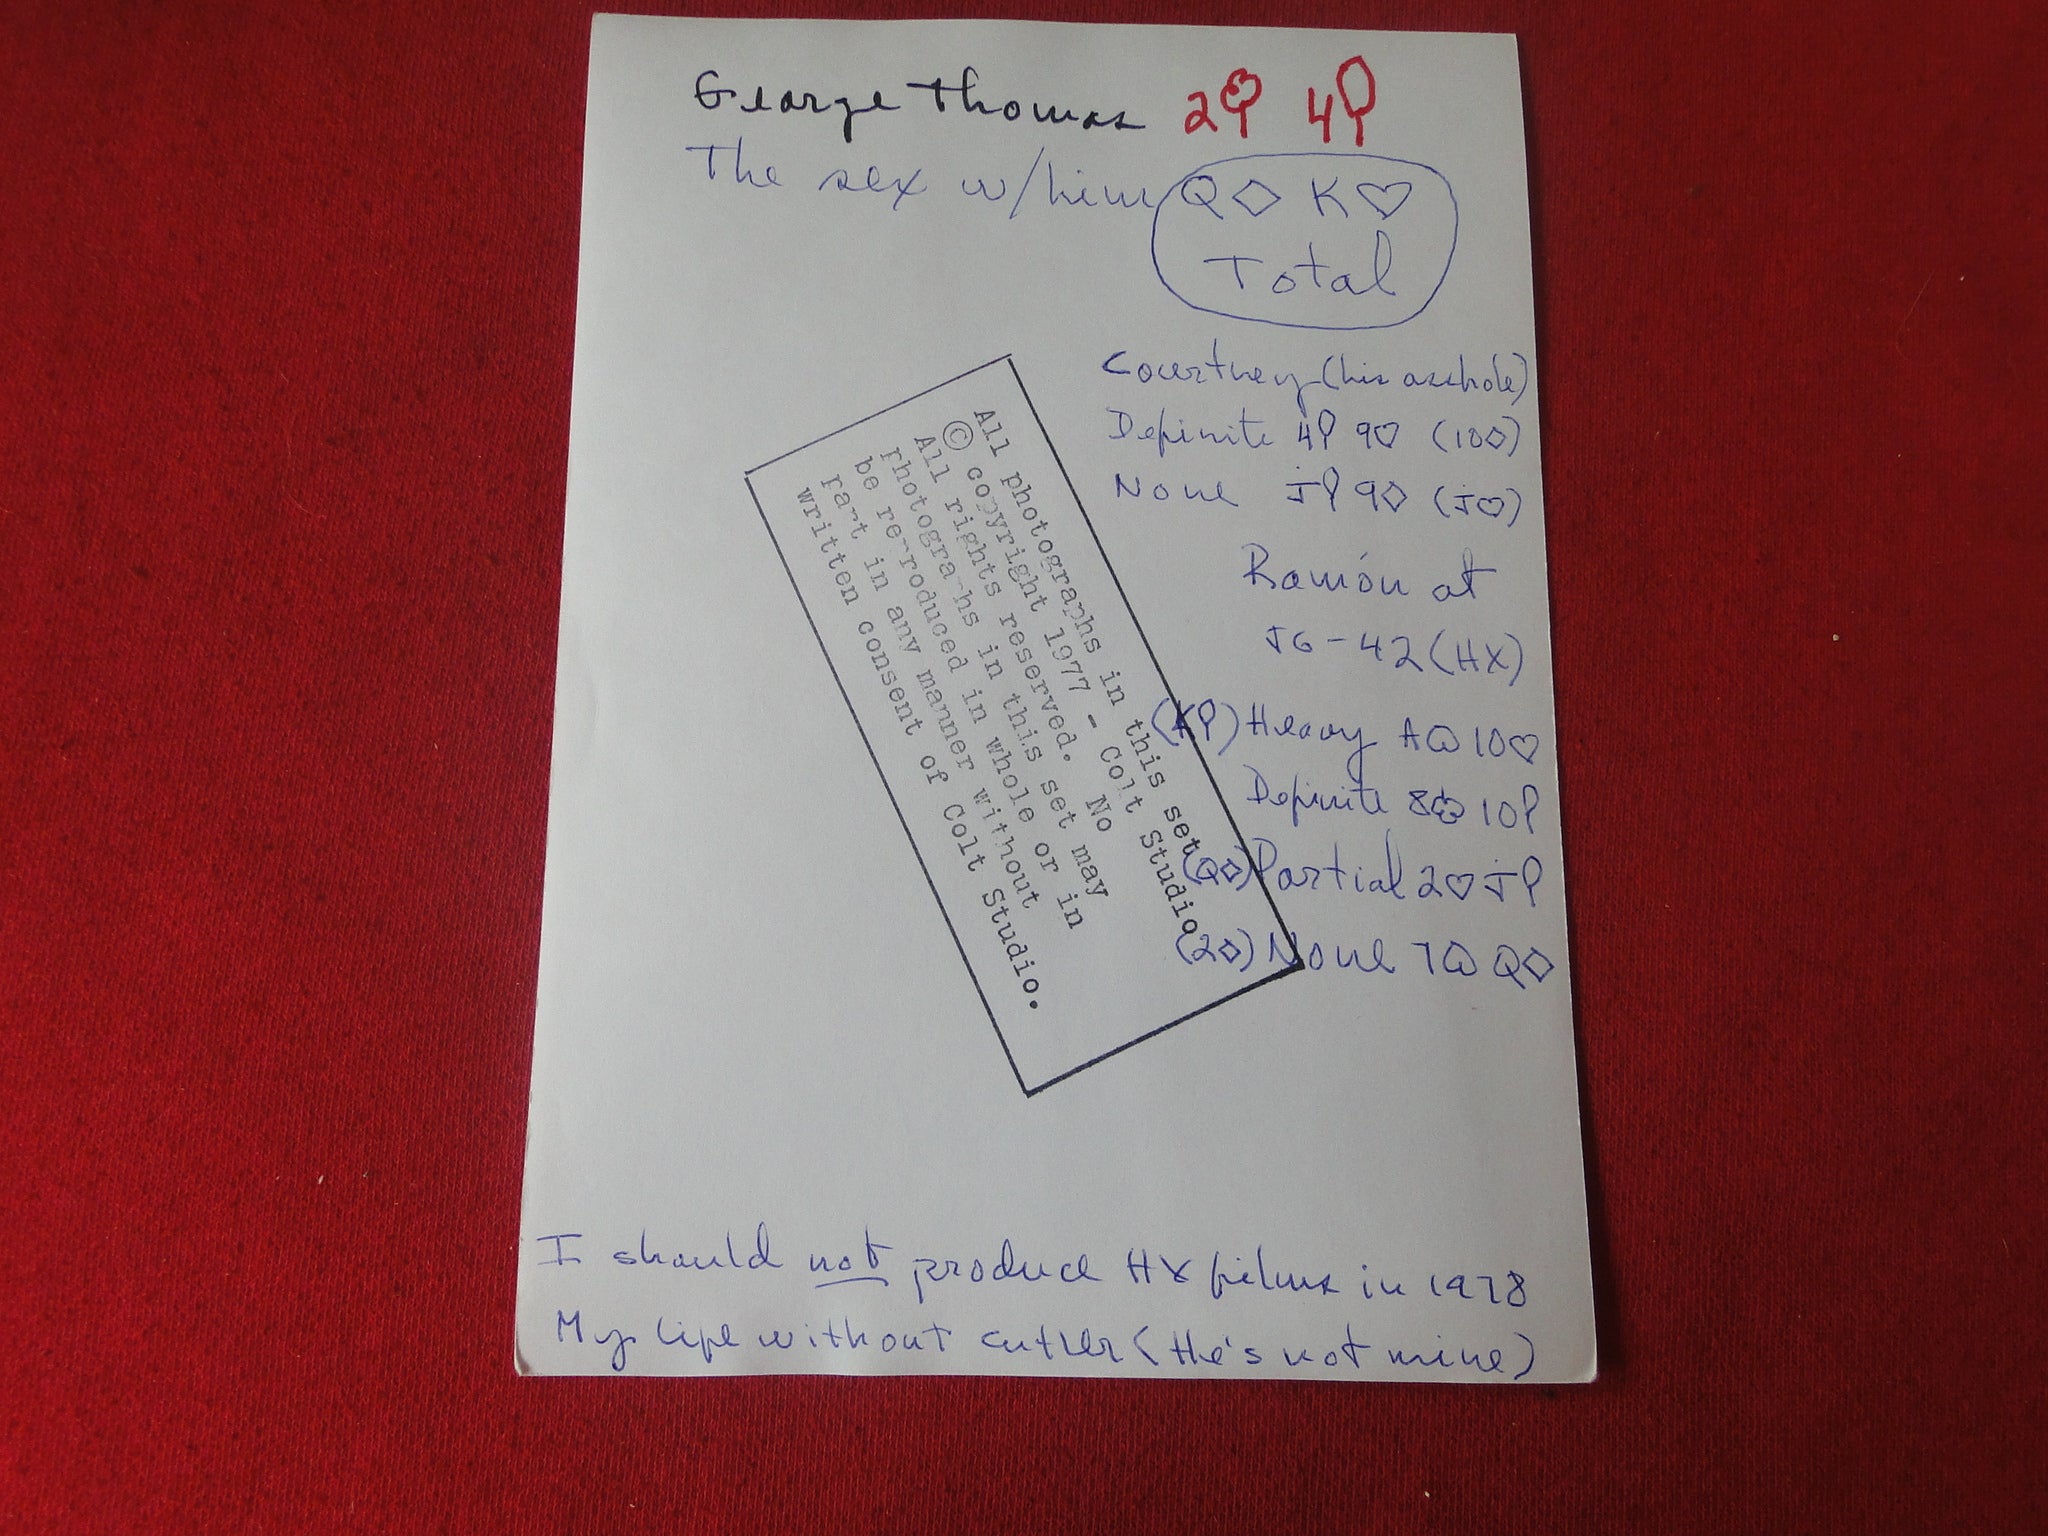 George Thomas 2♣ 4♠
The sex w/him Q♢ K♡
Total
Courtney (his asshole)
Definite 4♠ 9♡ (10♢)
None J♠ 9♢ (J♡)
Ramón at
J6-42 (HX)
(K♠) Heavy A♤ 10♡
Definite 8♧ 10♠
(Q♢) Partial 2♡ J♠
(2♢) None 7♤ Q♢
All photographs in this set
© copyright 1977 - Colt Studio
All rights reserved. No
photographs in this set may
be reproduced in whole or in
part in any manner without
written consent of Colt Studio.
I should not produce HX films in 1978
My life without Cutler (He's not mine)